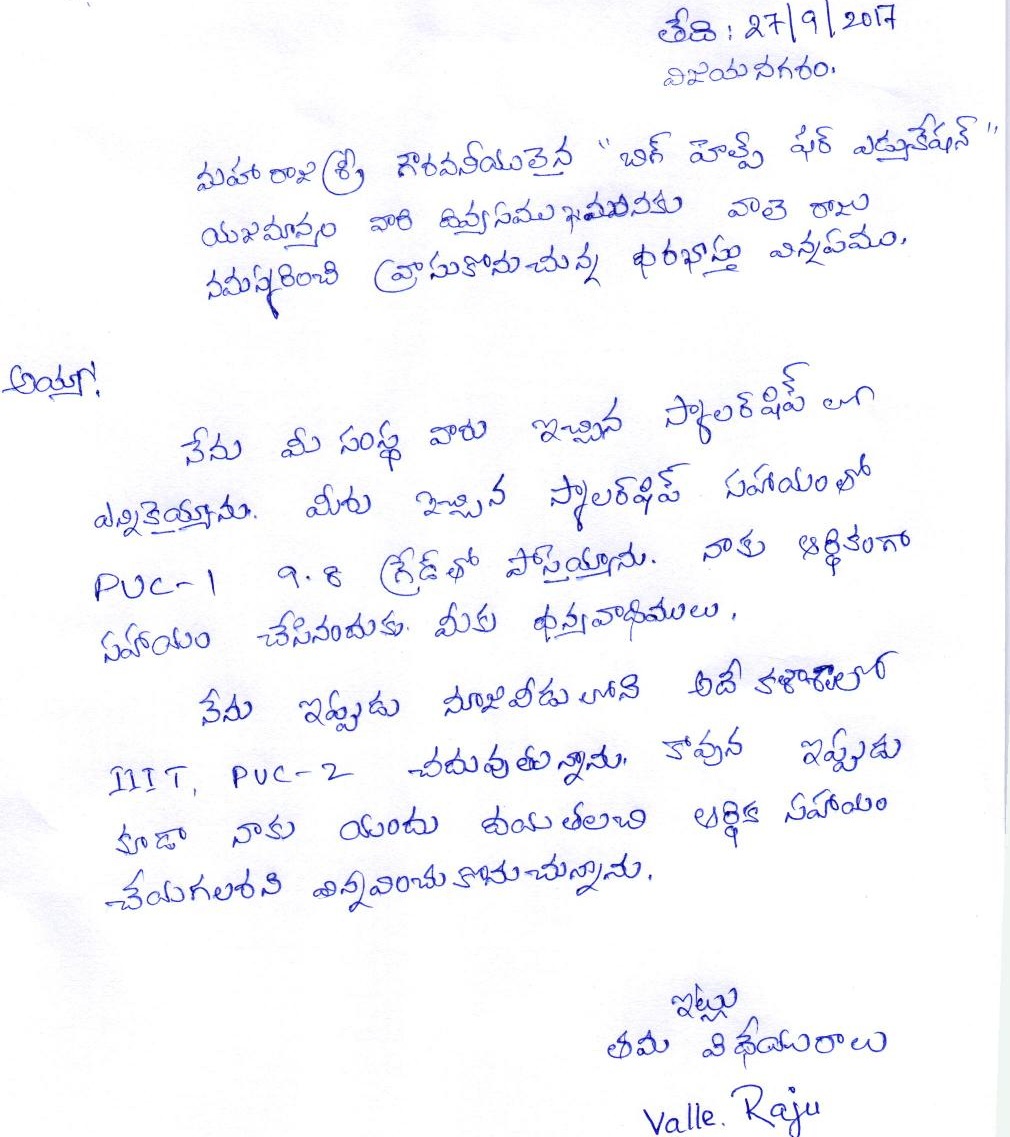 తేది: 27/9/2017
విజయనగరం.
మహారాజశ్రీ గౌరవనీయులైన "బిగ్ హెల్ప్ ఫర్ ఎడ్యుకేషన్"
యజమాన్యం వారి దివ్యసముఖమునకు వాలె రాజు
నమస్కరించి వ్రాసుకొనుచున్న ధరఖాస్తు విన్నపము.
అయ్యా!
నేను మీ సంస్థ వారు ఇచ్చిన స్కాలర్‌షిప్ లుగా
ఎన్నికెయ్యాను. మీరు ఇచ్చిన స్కాలర్‌షిప్ సహాయంతో
PUC-1 9.8 గ్రేడ్‌తో పాస్అయ్యాను. నాకు ఆర్థికంగా
సహాయం చేసినందుకు మీకు ధన్యవాధములు.
నేను ఇప్పుడు నూజివీడు లోని అదే కళాశాలలో
IIIT, PUC-2 చదువుతున్నాను. కావున ఇప్పుడు
కూడా నాకు యందు దయ తలచి ఆర్థిక సహాయం
చేయగలరని విన్నవించుకొనుచున్నాను.
ఇట్లు
తమ విధేయురాలు
Valle. Raju